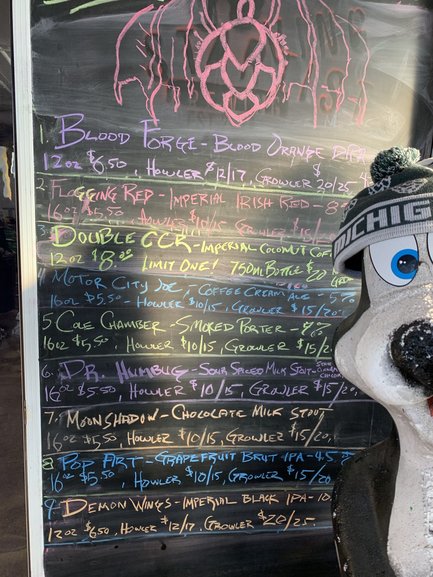 1. Blood Forge - Blood Orange DIPA
12oz $6.50, Howler $12/17, Growler $20/25
2. Flogging Red - Imperial Irish Red - 8
16oz $5.50, Howler $10/15, Growler $15/20
3. Double CCR - Imperial Coconut Coff
12oz $8.00 Limit One! 750ml Bottle $20
4 Motor City Joe, Coffee Cream Ale - 5.
16oz $5.50 - Howler $10/15, Growler $15/20
5 Cole Chamber - Smoked Porter -
16oz $5.50, Howler $10/15, Growler $15/20
6. Dr. Humbug - Sour Spiced Milk Stout -
16oz $5.50, Howler $10/15, Growler $15/20,
7. Moonshadow - Chocolate Milk Stout
16oz $5.50, Howler $10/15, Growler $15/20,
8 Pop Art - Grapefruit Brut IPA - 4.5
16oz $5.50, Howler $10/15, Growler $15/20
9 Demon Wings - Imperial Black IPA - 10.
12oz $6.50, Howler $12/17, Growler $20/25
MICHIG